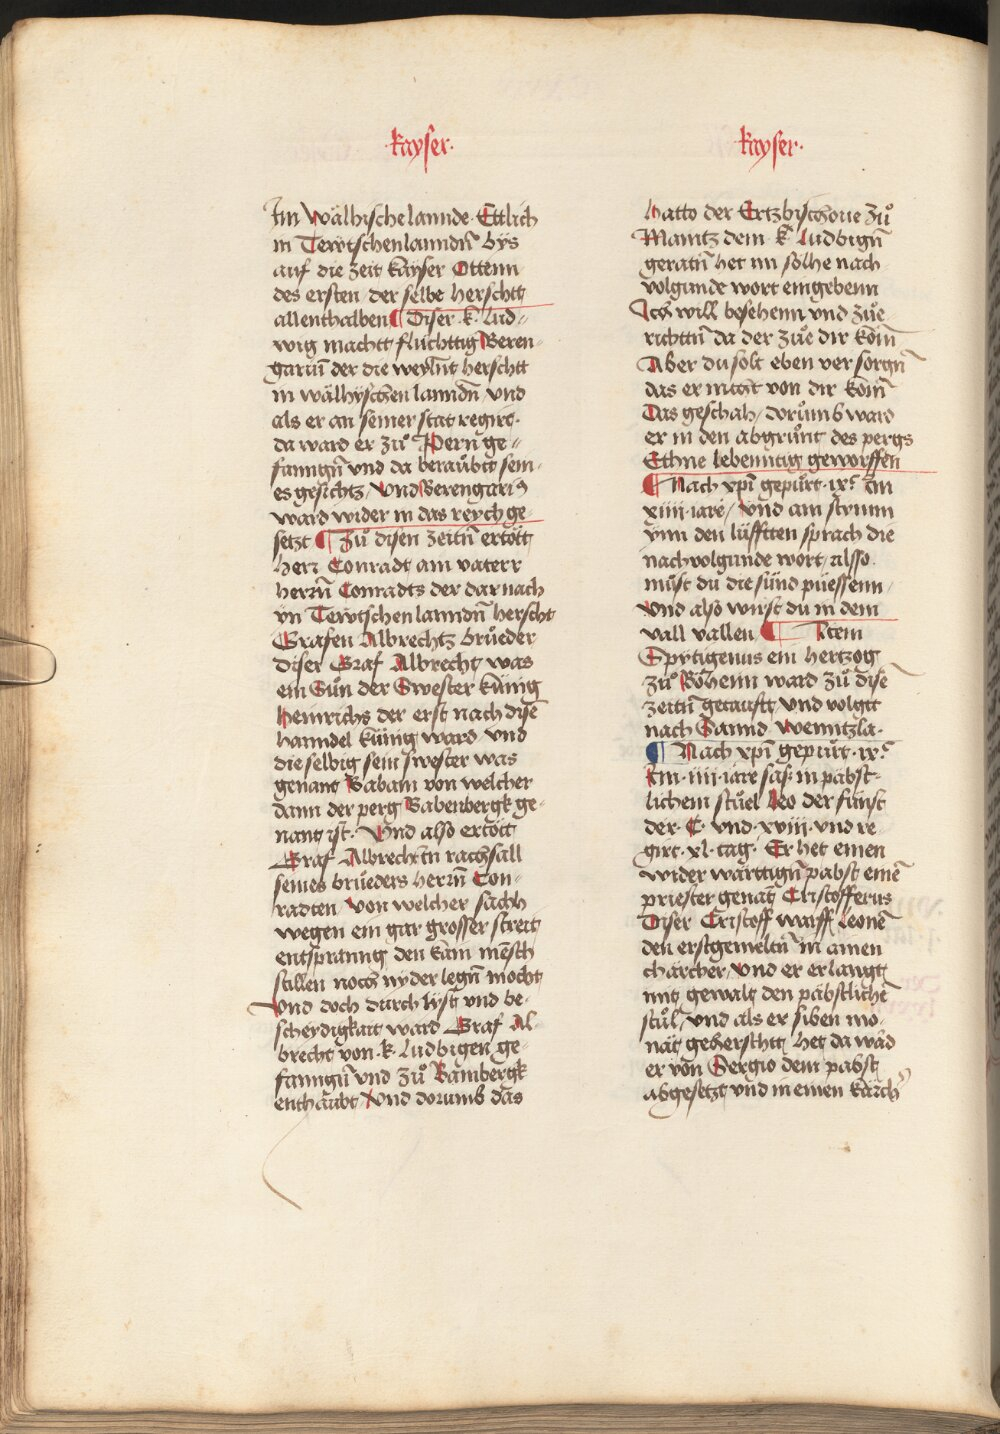 kayser·
Im wälhische lannde· Ettlich
in Tewtschenlanndn̄ bys
auf die zeit kayser Ottenn
des ersten / der selbe herschtt
allenthalben ¶ Diser ·k· Lud-
wig machtt fluchttig Beren-
gariū der die weylnt herschtt
in wälhyschen lanndn̄ / und
als er an seiner stat regirt·
da ward er zuͦ Pern ge-
fanngn̄ und da beraubtt sein-
es gesichtz / Und Berengari9
ward wider in das reych ge-
setzt ¶ Zuͦ disen zeitn̄ ertött
herr Conradt am vaterr
herrn̄ Conradts der darnach
yn Tewtschen lanndn̄ herscht
Grafen Albrechtz brueder
diser Graf Albrecht was
ein Suͦn der Swester künig
heinrichs der erst nach disē
hanndel küing ward und
die selbig sein swester was
genant Babam von welcher
dann der perg Babenbergk ge-
nant ist· Und also ertött
Graf Albrecht in rachsall
seines brueders herrn̄ Con-
radten / von welcher sachh
wegen ein gar grosser streit
entsprannng den kain mēsch
stillen noch nyder legn̄ mocht
Und doch durch lyst und be-
scheydigkait ward Graf Al-
brecht von ·k· Ludbigen ge-
fanngn̄ und zuͦ Bambergk
enthaubt / Und dorumb das
kayser·
hatto der Ertzbischoue zuͦ
Maintz dem k̄ Ludbign̄
geratn̄ het im solhe nach
volgunde wort eingebenn
Ich will besehenn und zuͦe
richttn̄ da der zuͦe dir kom̄
Aber du solt eben versorgn̄
das er nicht von dir kom̄
Das geschah / dorumb ward
er in den abgrunt des pergs
Ethne lebenntig geworffen
¶ Nach xpi gepurt ·ixc· Im
xiiii iare / Und am strum
ynn den lüfftten sprach die
nachvolgunde wort / also
müst du die sünd püessenn
Und also wirst du in dem
vall vallen ¶ Item
Spytigenus ein hertzog
zuͦ Böhenn ward zuͦ disē
zeitn̄ getaufft / und volgtt
nach Sannd wenntzla·
¶ Nach xpi gepurt ·ixc·
Im ·iiii· iare sass in pabst-
lichem stuͦel Leo der fünft
der ·C· und ·xviii· und re-
girt ·xl· tag· Er het einen
wider wärttign̄ pabst einē
priester genāt Cristofferus
Diser Cristoff warff Leonē
den erstgemeltn̄ in ainen
chärcher / und er erlangt
mit gewalt den päbstlichē
stuͦl / und als er siben mo-
nat geherschtt het da wād
er von Sergio dem pabst
abgesetzt und in einen kärch9